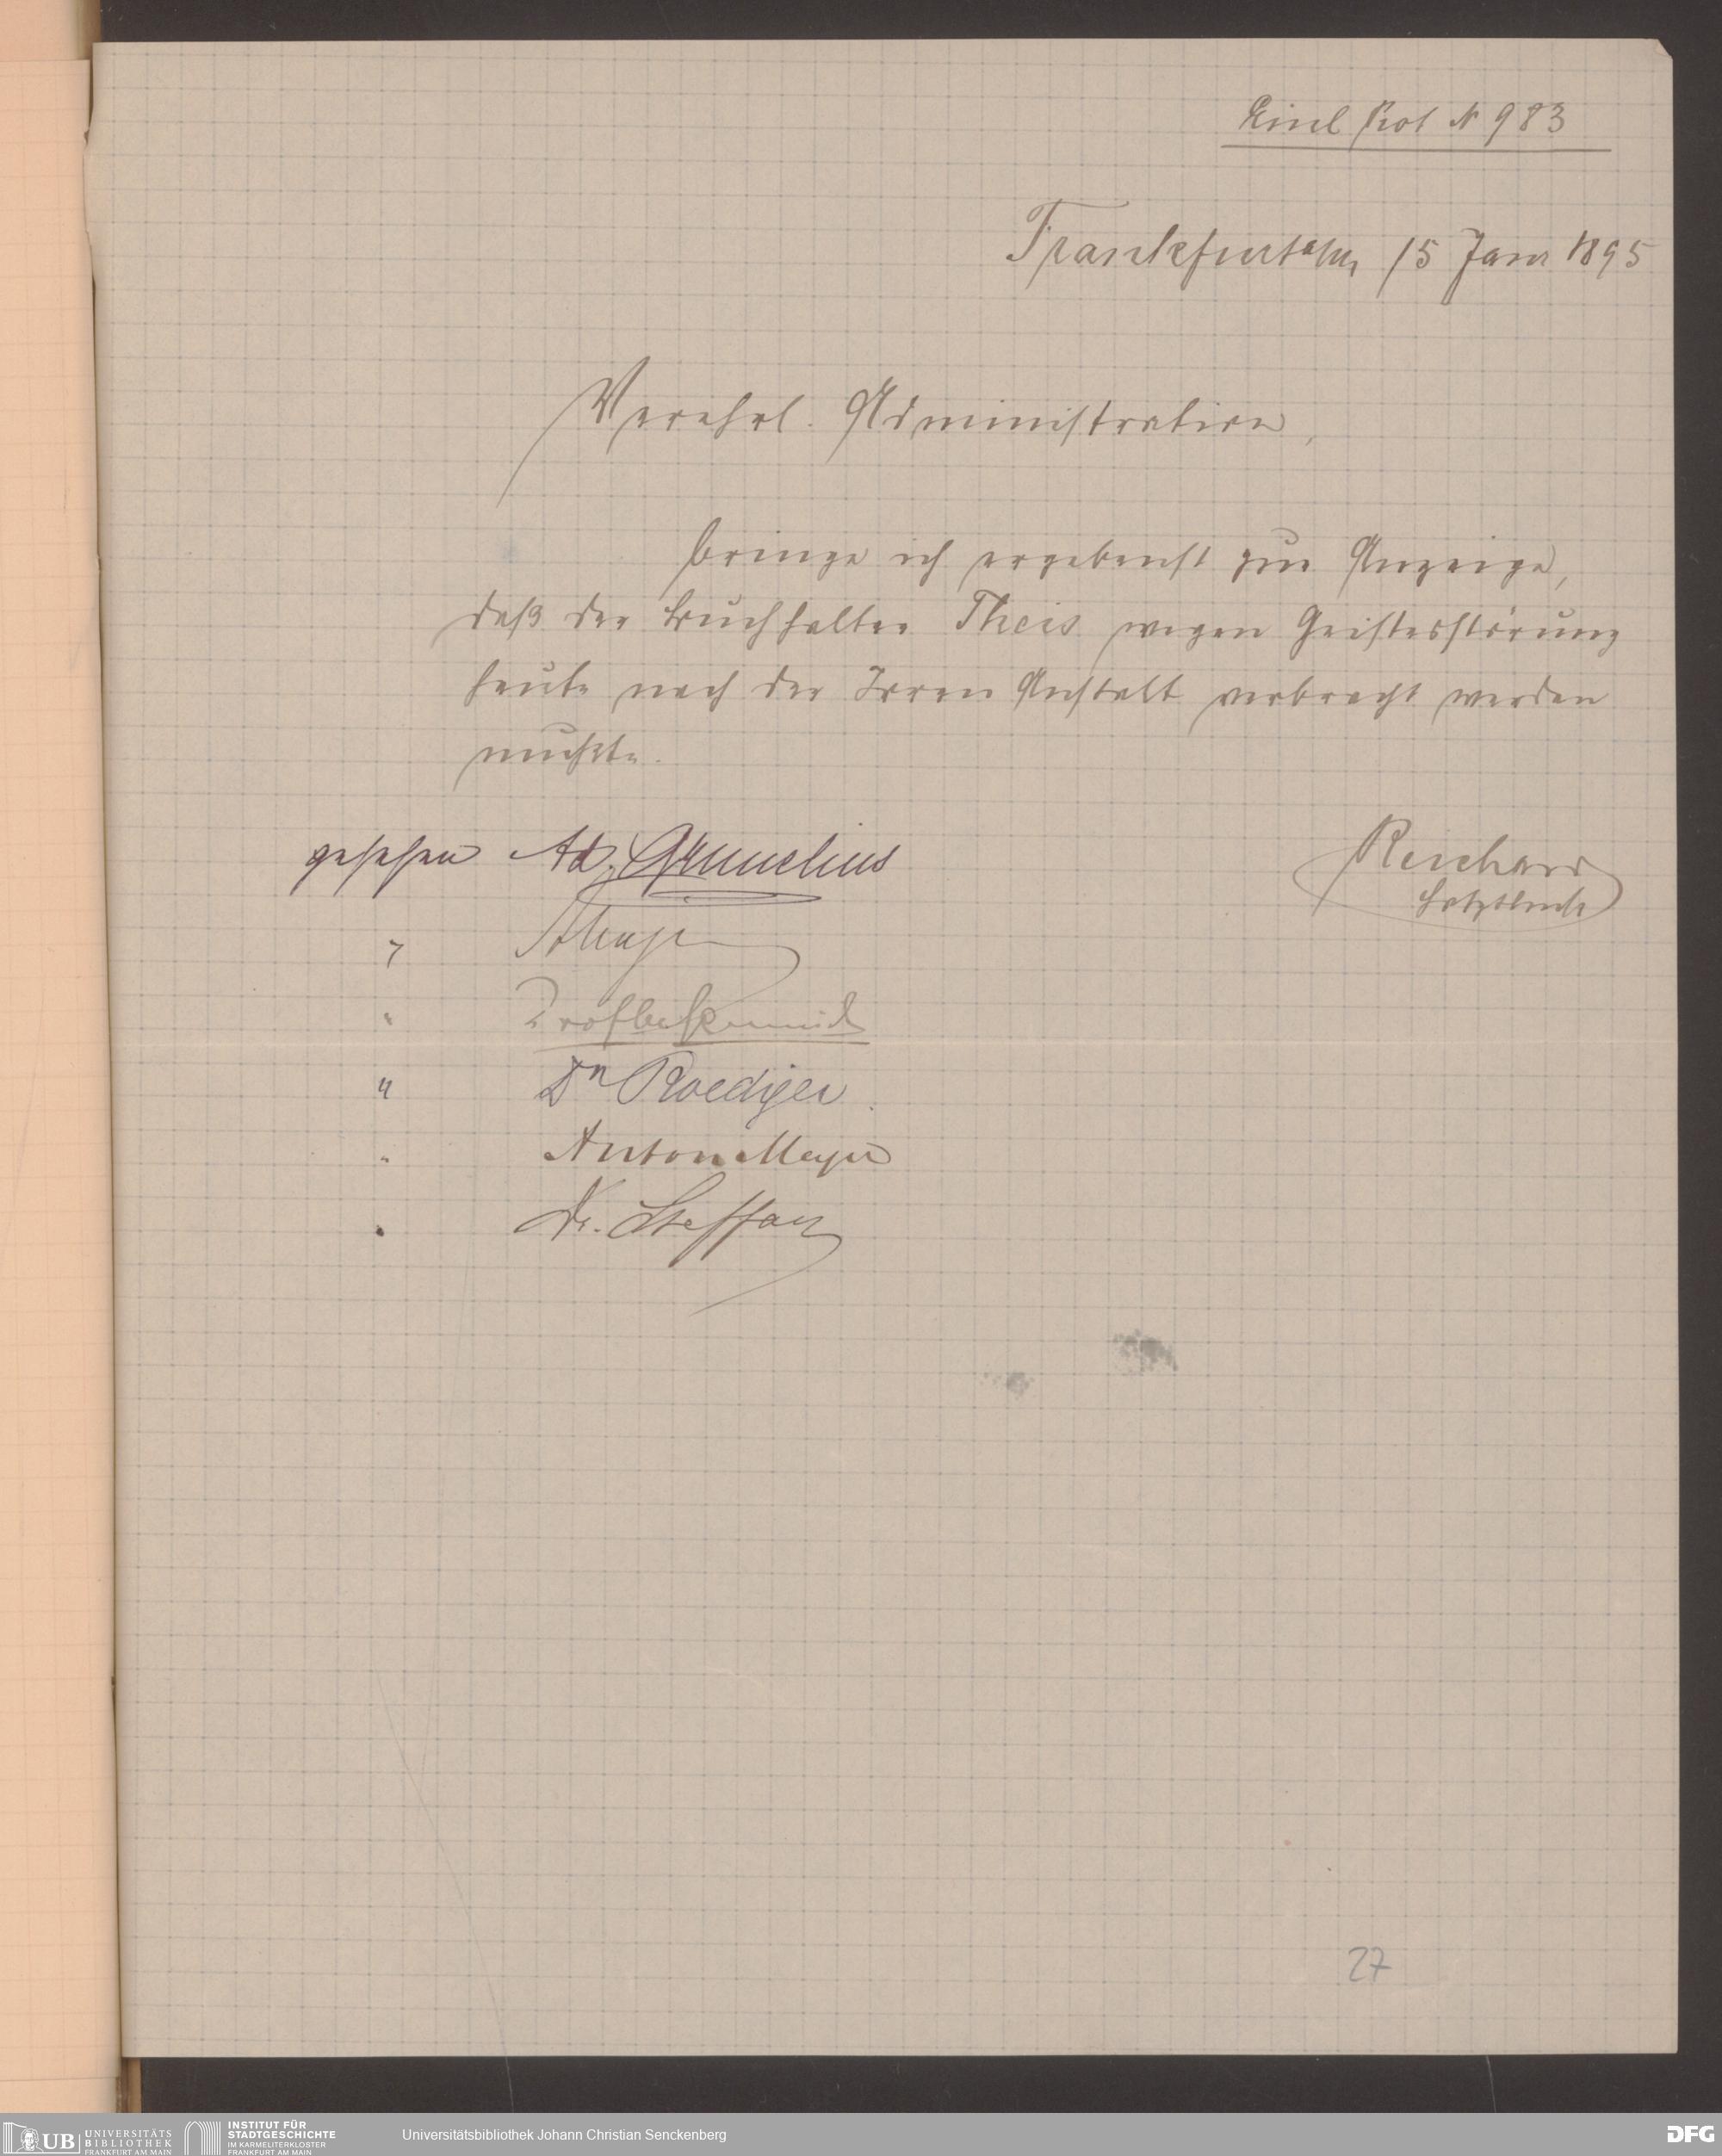 Einl Prot N 983
Frankfurt a/M, 15 Janr 1895
Verehrl. Administration,
bringe ich ergebenst zur Anzeige,
daß der Buchhalter Theis wegen Geistesstörung
heute nach der Irren Anstalt verbracht werden
mußte.
Reichard
gesehen Ad. Grunelius
"
"
" Dr Roediger.
" Anton Meyer
" Dr. Steffan
27
UB UNIVERSITÄTS BIBLIOTHEK FRANKFURT AM MAIN
INSTITUT FÜR STADTGESCHICHTE IM KARMELITERKLOSTER FRANKFURT AM MAIN
Universitätsbibliothek Johann Christian Senckenberg
DFG